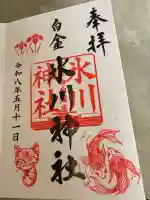 奉拝
白金
氷川神社
氷川
神社
令和八年五月十一日